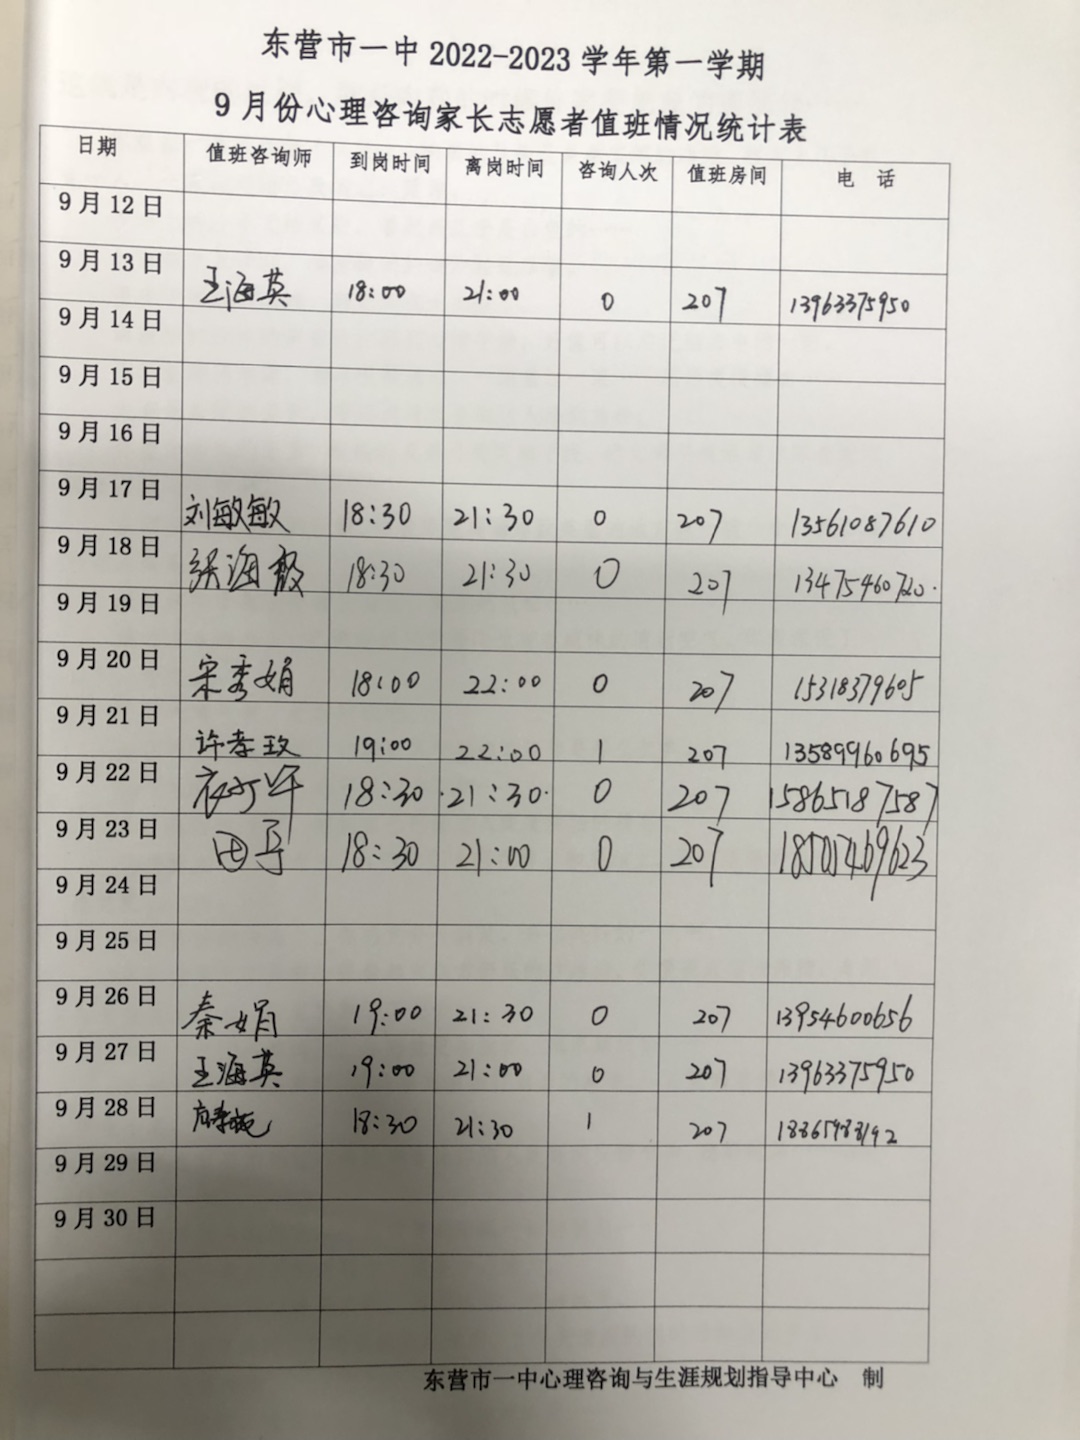 东营市一中 2022-2023 学年第一学期
9 月份心理咨询家长志愿者值班情况统计表
日期 值班咨询师 到岗时间 离岗时间 咨询人次 值班房间 电 话
9 月 12 日
9 月 13 日 王海英 18:00 21:00 0 207 13963375950
9 月 14 日
9 月 15 日
9 月 16 日
9 月 17 日 刘敏敏 18:30 21:30 0 207 13561087610
9 月 18 日 张海霞 18:30 21:30 0 207 13475460720
9 月 19 日
9 月 20 日 宋秀娟 18:00 22:00 0 207 15318379605
9 月 21 日 许孝玫 19:00 22:00 1 207 13589960695
9 月 22 日 18:30 21:30 0 207 15865187587
9 月 23 日 18:30 21:00 0 207
9 月 24 日
9 月 25 日
9 月 26 日 秦娟 19:00 21:30 0 207 13954600656
9 月 27 日 王海英 19:00 21:00 0 207 13963375950
9 月 28 日 18:30 21:30 1 207
9 月 29 日
9 月 30 日
东营市一中心理咨询与生涯规划指导中心 制